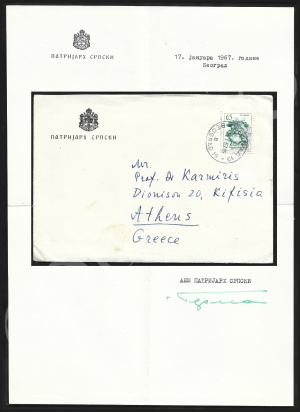 ПАТРИЈАРХ СРПСКИ
17. јануара 1967. године
Београд
ПАТРИЈАРХ СРПСКИ
Mr.
Prof. Dr Karmiris
Dionison 20, Kifisia
Athens
Greece
АЕМ ПАТРИЈАРХ СРПСКИ